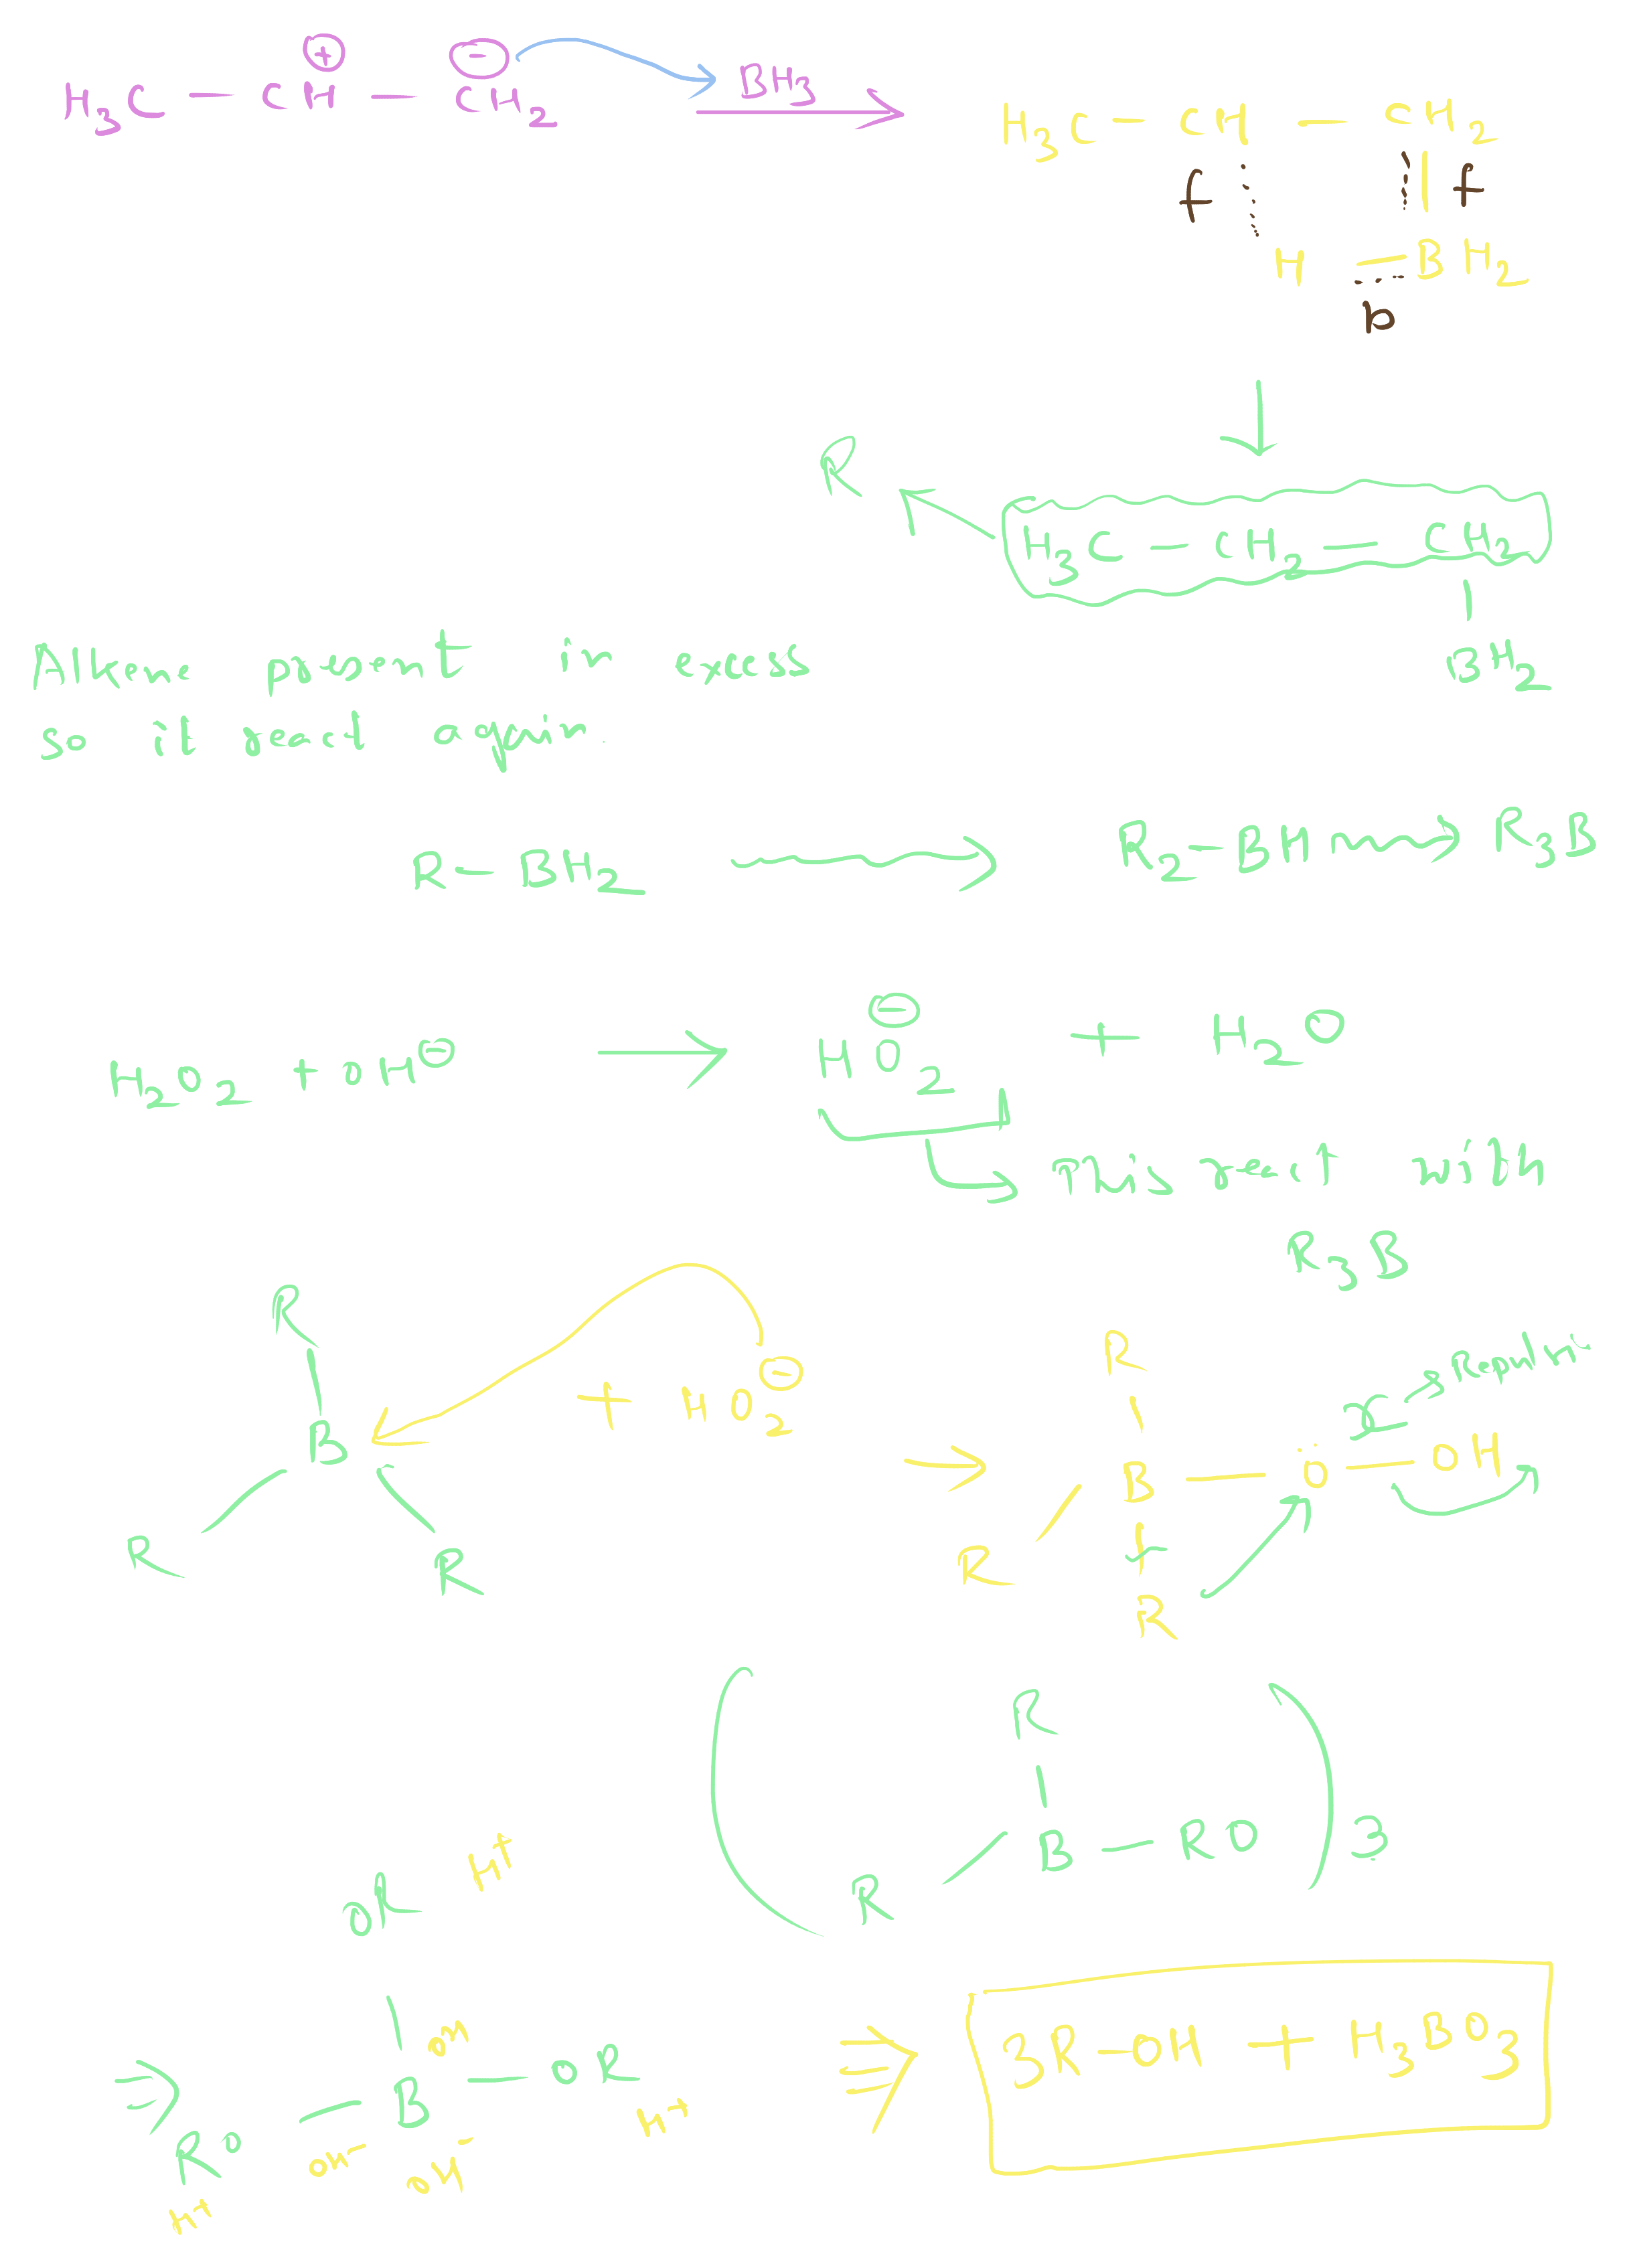 H₃C — CH⊕ — CH₂⊖ BH₃ →
H₃C — CH — CH₂
f f
H — BH₂
b
R
H₃C — CH₂ — CH₂
BH₂
Alkene present in excess
so it react again.
R — BH₂ → R₂ — BH → R₃B
H₂O₂ + OH⊖ → HO₂⊖ + H₂O
This react with
R₃B
R
B
R R
+ HO₂⊖
→
R
R B — Ö — OH
R
R
R B — RO
3
OR H⁺
⇒ RO — B — OR
OH OH⁻ OH⁻
H⁺ H⁺
⇒ 3R—OH + H₃BO₃